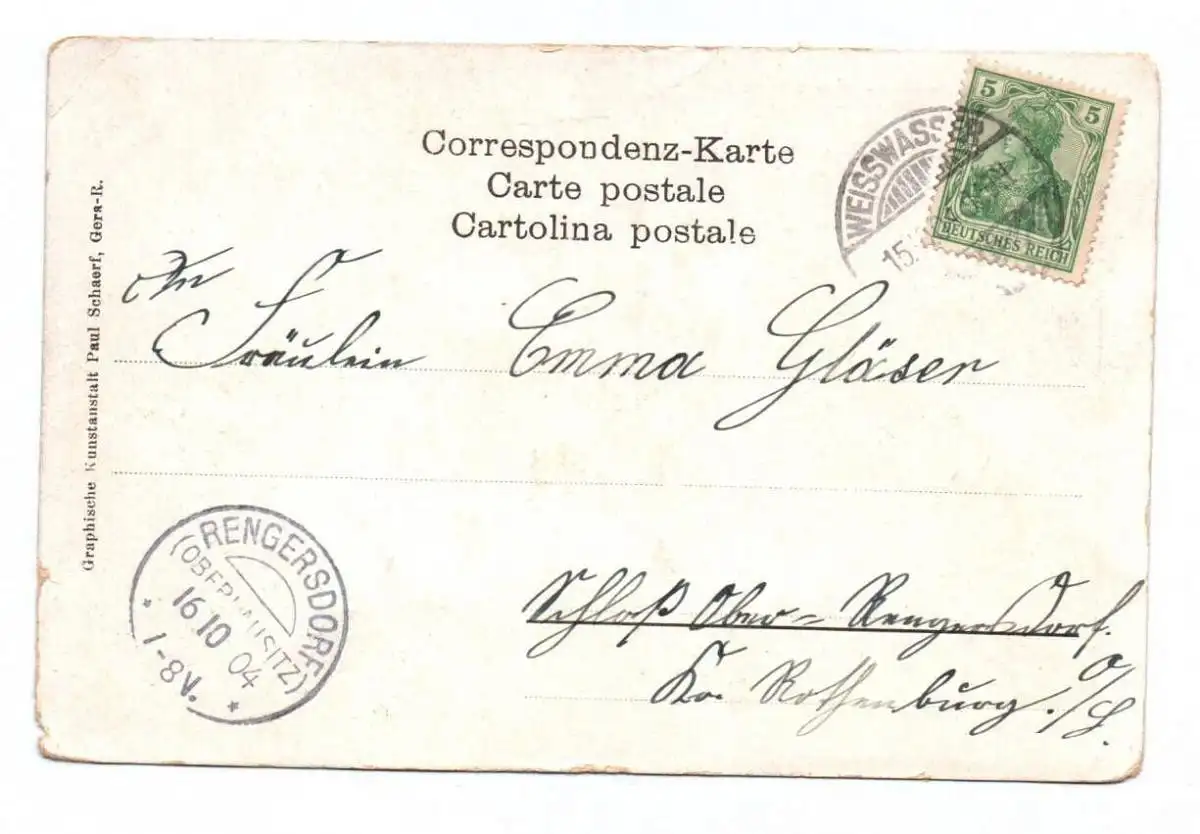 Correspondenz-Karte
Carte postale
Cartolina postale
5 5
DEUTSCHES REICH
WEISSWASSER
15.
An
Fräulein Emma Gläser
Schloß Ober-Rengersdorf.
Kr. Rothenburg. O/L.
RENGERSDORF
(OBERLAUSITZ)
16.10 04
1-8V.
Graphische Kunstanstalt Paul Schaerf, Gera-R.